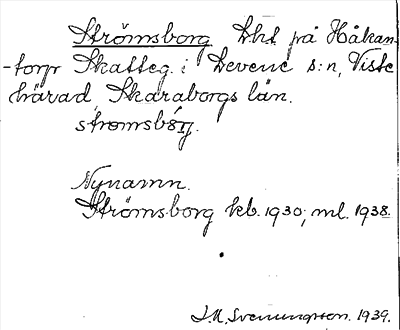 Strömsborg Lht på Håkan-
-torp Skatteg. i Levene s:n, Viste
härad, Skaraborgs län.
Nynamn.
Strömsborg kb. 1930, ml. 1938.
J.A. Svenungsson. 1939.